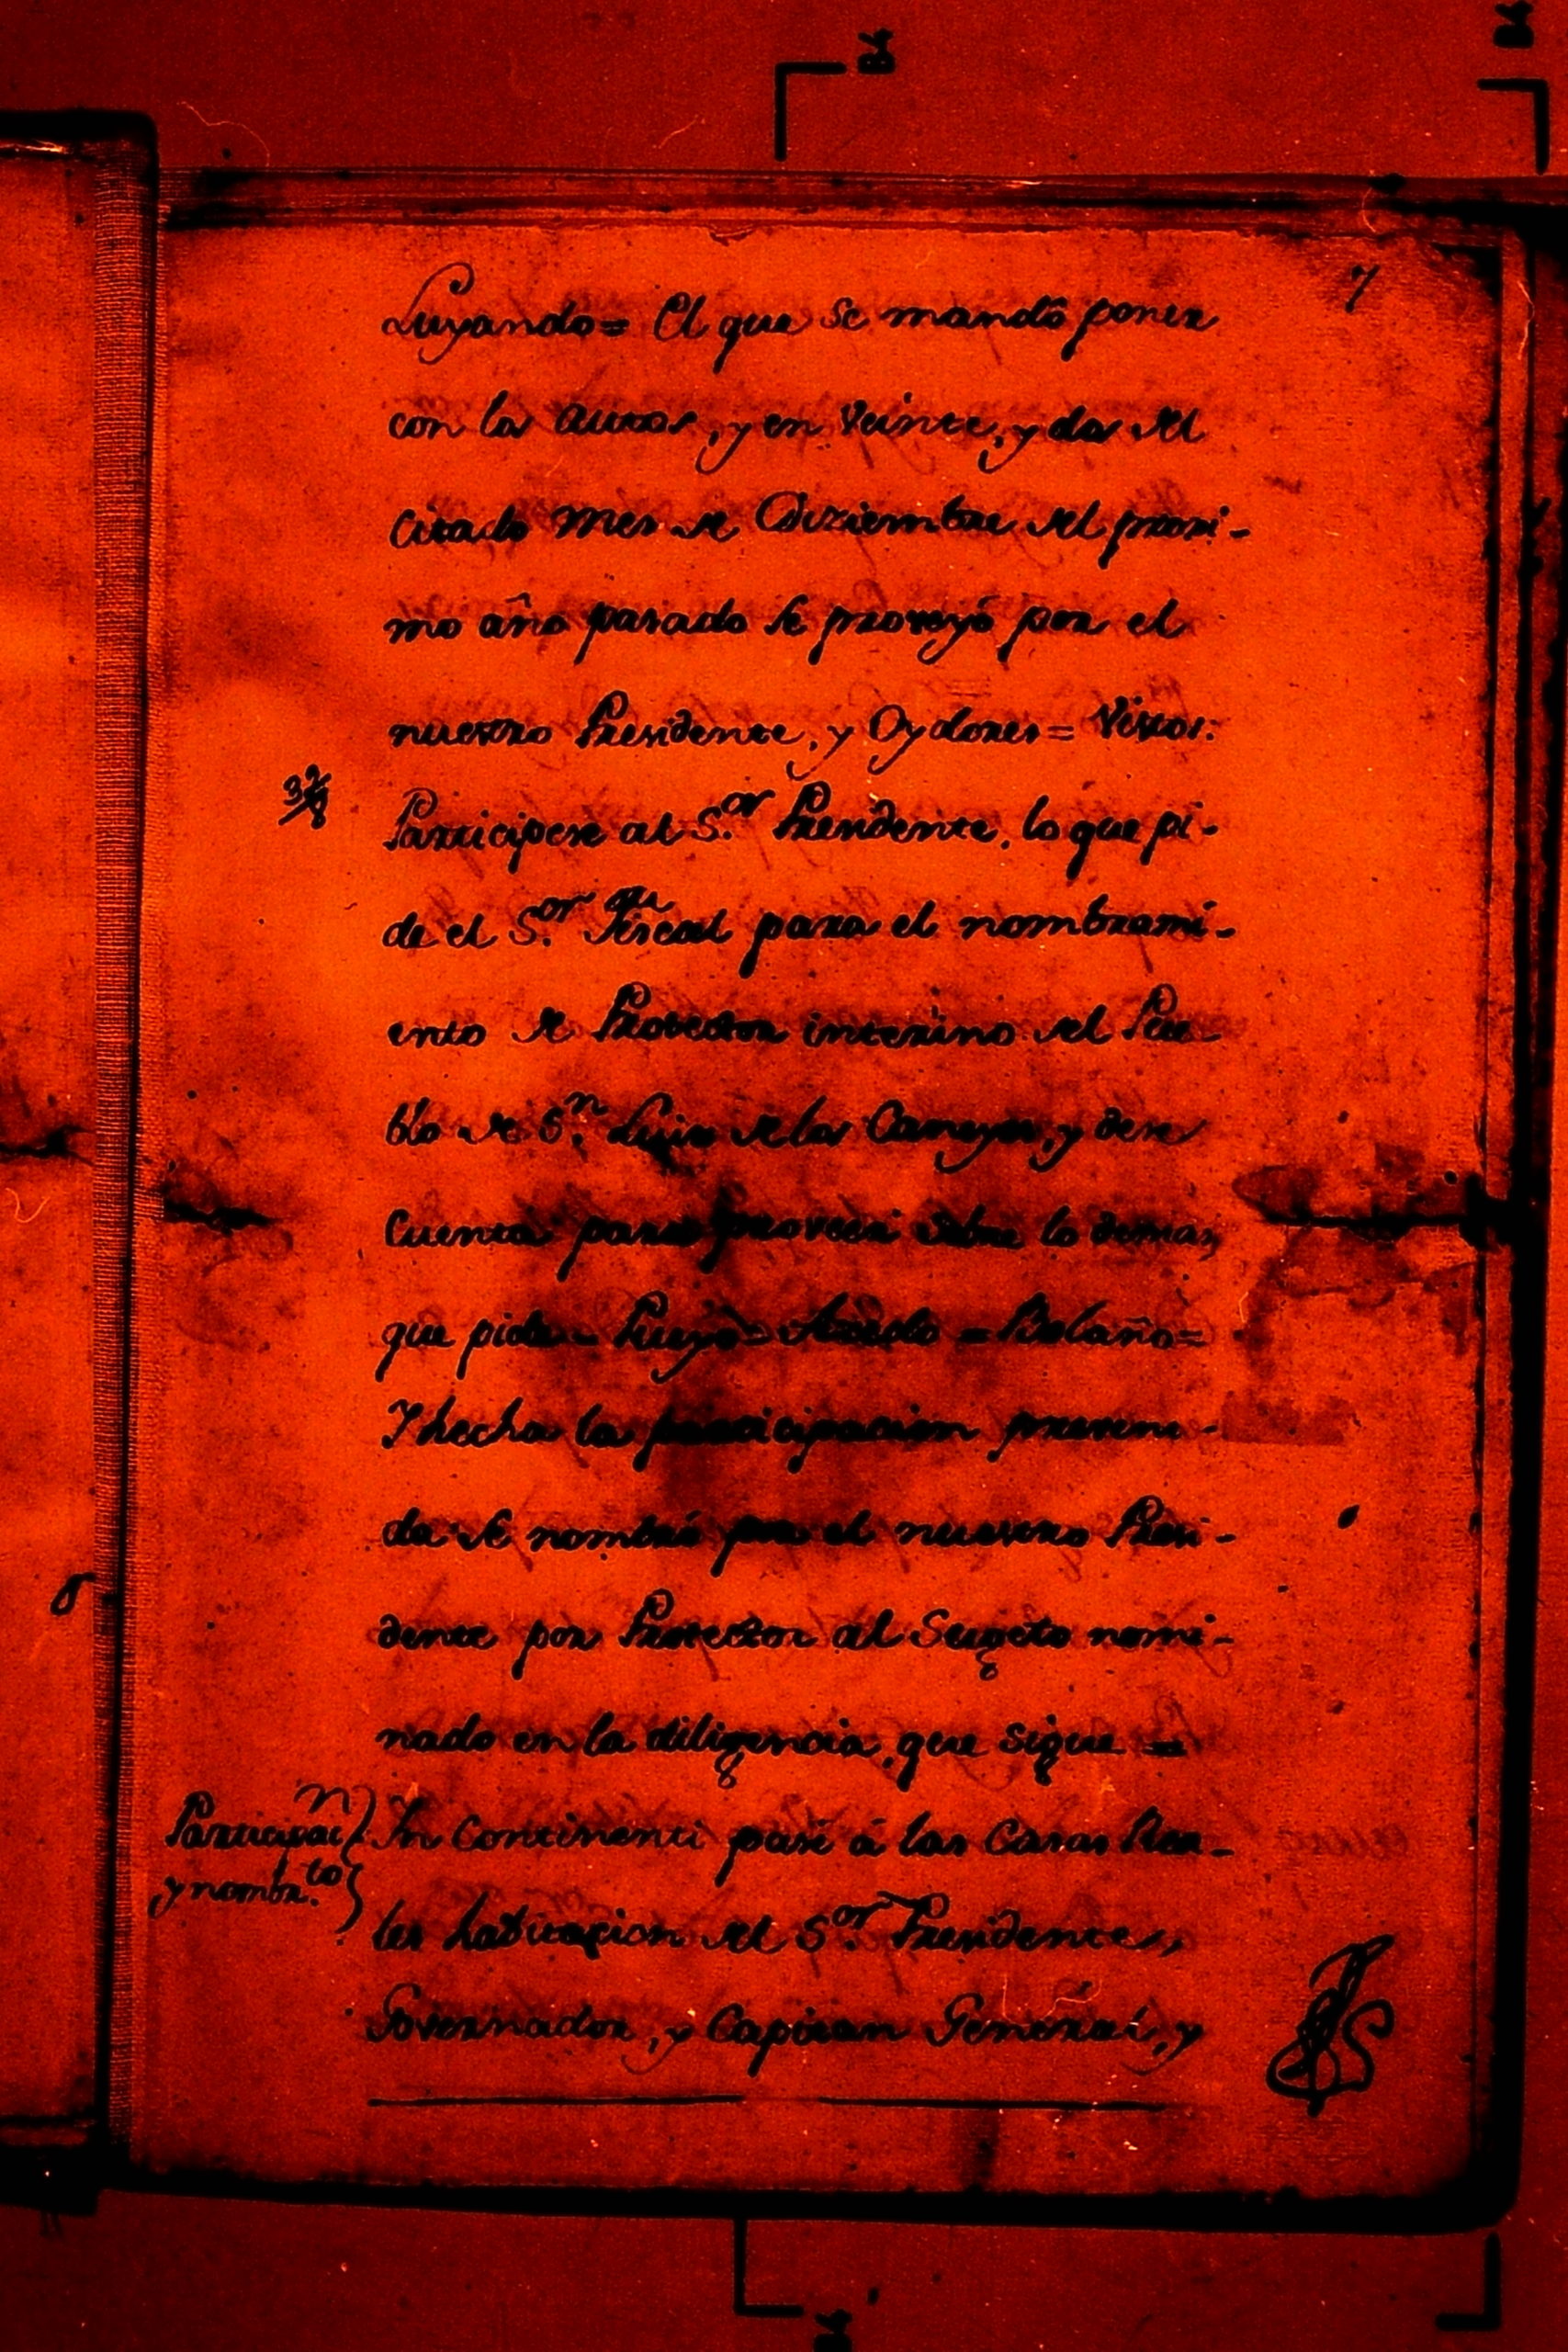 7
Luyando = El que se mandó poner
con los autos, y en veinte, y dos del
citado mes de Diziembre del proxi-
mo año pasado se proveyó por el
nuestro Presidente, y Oydores = Vistos:
Participese al S.or Presidente, lo que pi-
de el S.or Fiscal para el nombrami-
ento de Protector interino del Pue-
blo de S.n Luis de los Cameyos, y dese
Cuenta para proveer sobre lo demas,
que pide = Pueyo = = Bolaño =
Y hecha la participacion preveni-
da se nombró por el nuestro Presi-
dente por Protector al Sugeto nomi-
nado en la diligencia, que sigue =
Participac.n
y nombr.to
In Continenti pasé á las Casas Rea-
les habitacion del S.or Presidente,
Governador, y Capitan General, y